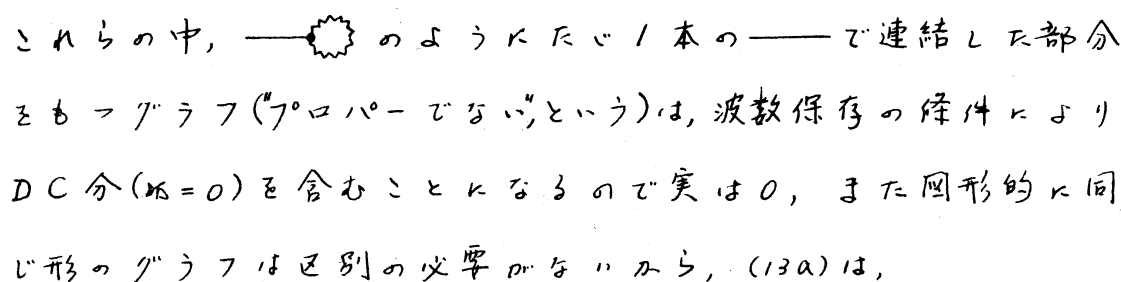 これらの中, のようにただ1本の で連結した部分
をもつグラフ("プロパーでない"という)は, 波数保存の條件により
DC分(k=0)を含むことになるので実は0, また図形的に同
じ形のグラフは区別の必要がないから, (13a)は,